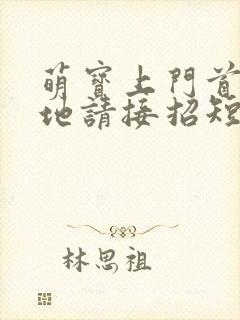 萌寶上門首
地請接招短
林思祖